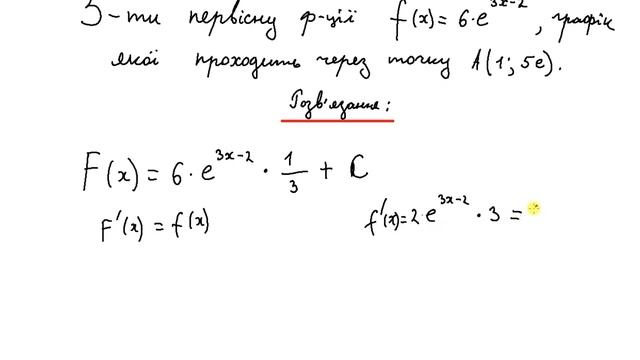 З-ти первісну ф-ції f(x) = 6·e^{3x-2}, графік
якої проходить через точку A(1; 5e).
Розв'язання:
F(x) = 6·e^{3x-2} · 1/3 + C
F'(x) = f(x) f'(x) = 2·e^{3x-2} · 3 =